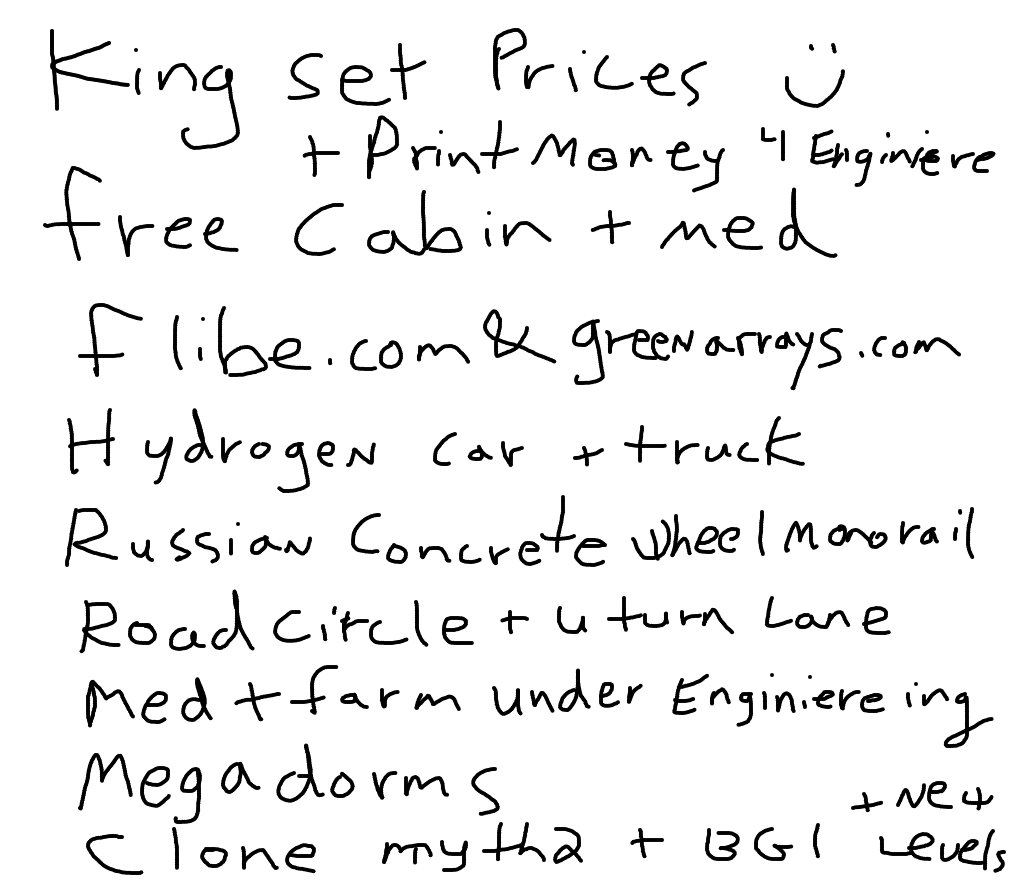 King set Prices :)
+ Print Money 4 Enginiere
free Cabin + med
flibe.com & greenarrays.com
Hydrogen car + truck
Russian Concrete wheel Monorail
Road Circle + u turn Lane
Med + farm under Enginiereing
Megadorms
+ New
Clone myth2 + BG1 Levels